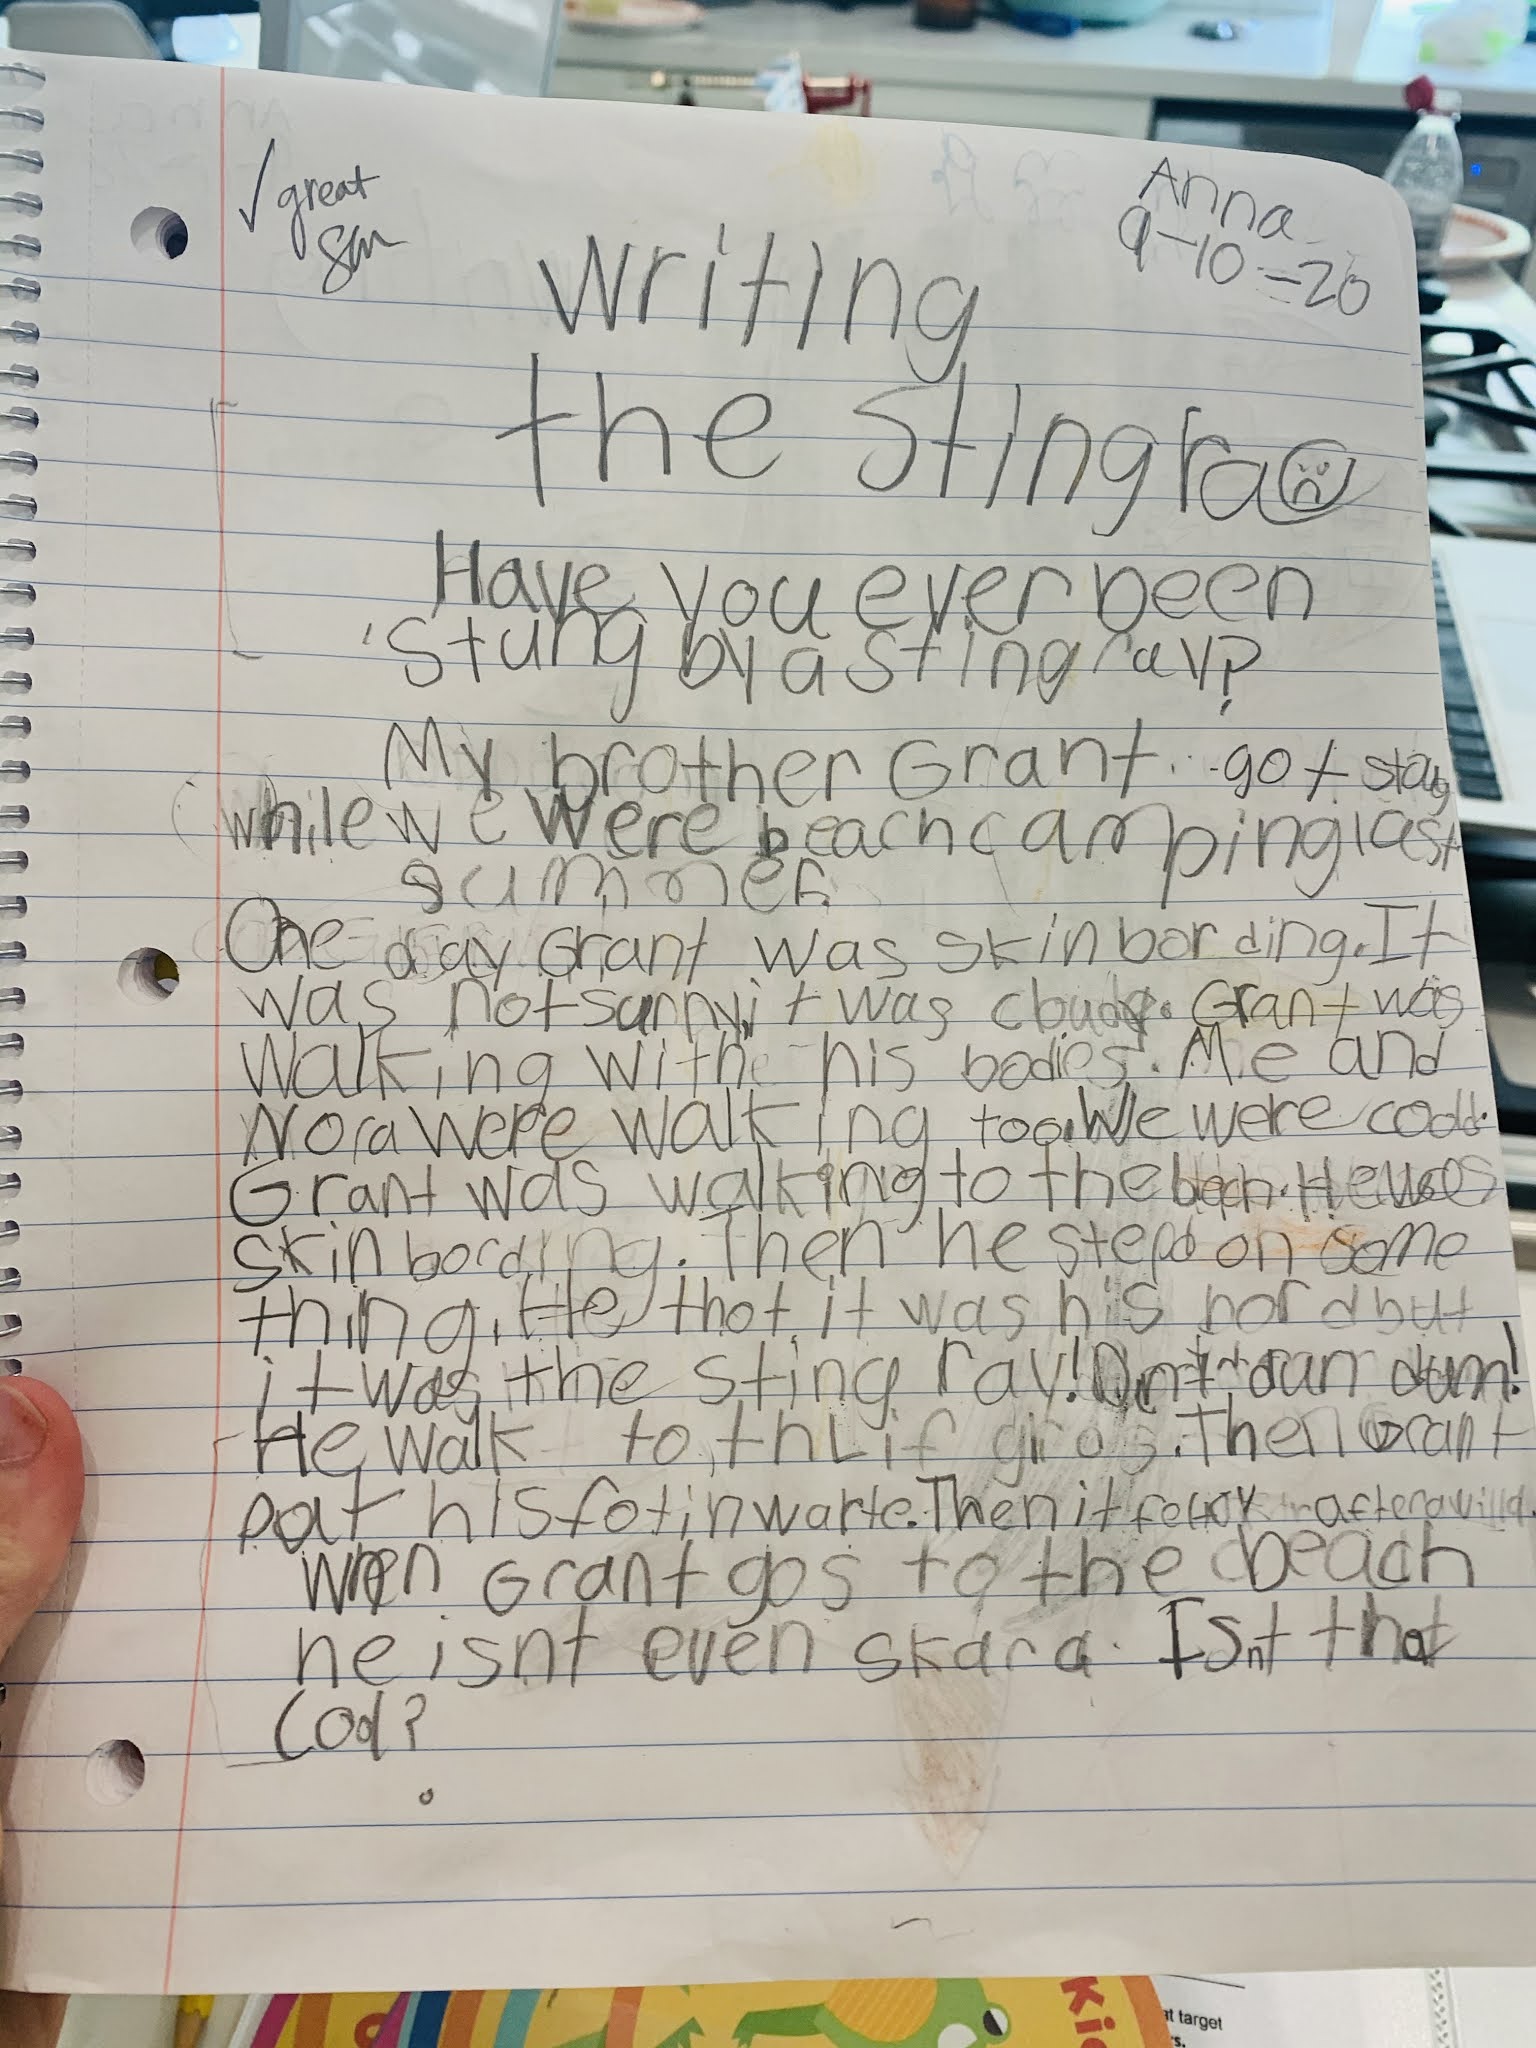 ✓ great
Anna
9-10-20
writing
the stingra
Have you ever been
stung by a sting ray?
My brother Grant... got stung
while we were beach camping last
summer.
One day Grant was skin bording. It
was not sunny, it was cloudy. Grant was
Walking withe his bodies. Me and
Nora were walking too. We were coold.
Grant was walking to the beach. He was
skin bording. Then he stepd on some
thing. He thot it was his bord but
it was the sting ray! dun dum!
He walk to th Lif gros. Then Grant
pot his fot in warte. Then it after a willd.
When Grant gos to the beach
he isnt even skard. Isnt that
Cool?
Kid
at target
rs.